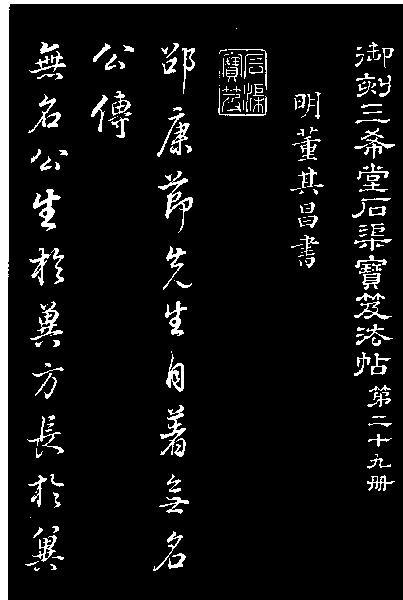 御刻三希堂石渠寶笈法帖 第二十九册
明董其昌書
石渠寶笈
邵康節先生自著無名
公傳
無名公生於冀方長於冀